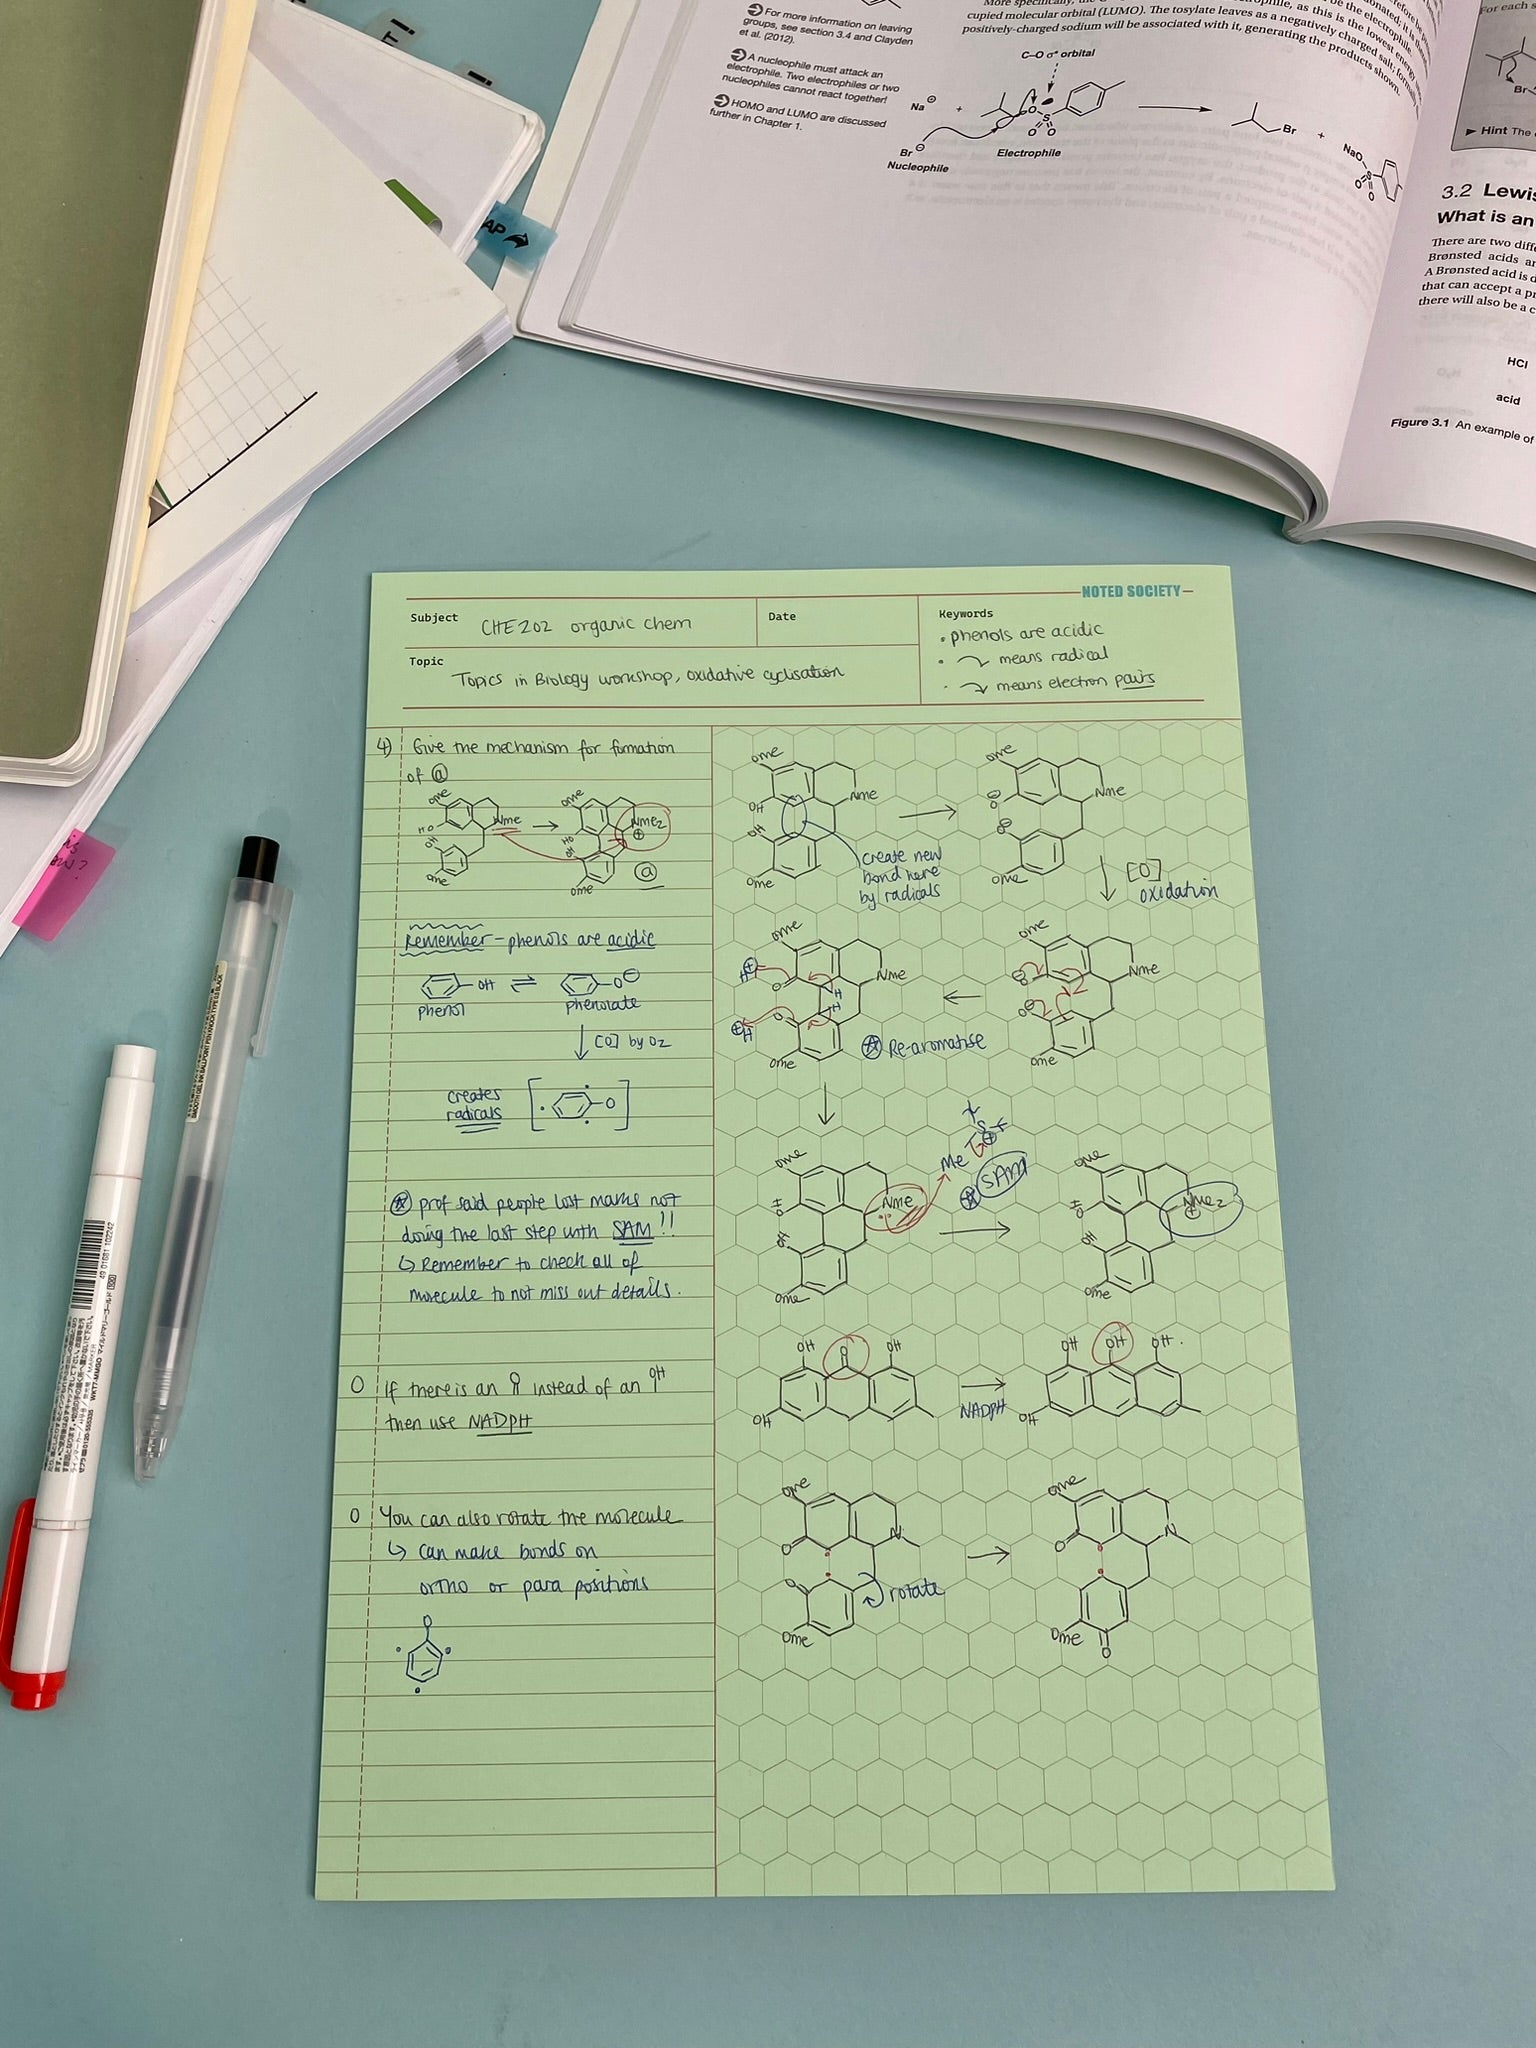 For more information on leaving
groups, see section 3.4 and Clayden
et al. (2012).
A nucleophile must attack an
electrophile. Two electrophiles or two
nucleophiles cannot react together!
HOMO and LUMO are discussed
further in Chapter 1.
cupied molecular orbital (LUMO). The tosylate leaves as a negatively charged salt;
positively-charged sodium will be associated with it, generating the products shown.
C–O σ* orbital
Na⊕ +
Br⊖
Nucleophile
Electrophile
Br +
NaO
For each
Br
Hint The
3.2 Lewis
What is an
There are two diffe
Brønsted acids an
A Brønsted acid is d
that can accept a pr
there will also be a c
HCl
acid
Figure 3.1 An example of
AP
NOTED SOCIETY
Subject CHE202 organic chem
Date
Topic
Topics in Biology workshop, oxidative cyclisation
Keywords
• phenols are acidic
• means radical
· means electron pairs
4) Give the mechanism for fomation
of ⓐ
OMe
HO
OH
OMe
NMe
OMe
HO
OH
OMe
NMe₂
⊕
ⓐ
Remember - phenols are acidic
OH ⇌ O⊖
phenol
phenolate
[O] by O₂
creates
radicals
O
prof said people lost marks not
doing the last step with SAM!!
↳ Remember to check all of
molecule to not miss out details.
O If there is an O instead of an OH
then use NADPH
O You can also rotate the molecule
↳ can make bonds on
ortho or para positions
O
OMe
OH
OH
OMe
NMe
create new
bond here
by radicals
OMe
O⊖
O⊖
OMe
NMe
[O]
oxidation
OMe
⊕H
O
NMe
H
H
O
⊕H
OMe
Re-aromatise
OMe
O⊖
O⊖
OMe
NMe
OMe
HO
OH
OMe
NMe
Me
S⊕
SAM
OMe
HO
OH
OMe
NMe₂
⊕
OH
O
OH
OH
NADPH
OH
OH
OH
OH
OMe
O
O
N
OMe
rotate
OMe
O
N
OMe
O
SMOOTH GEL INK BALLPOINT PEN KNOCK TYPE 0.5 BLACK
49 01681 102242
WKT7-MMGO マイルドマリーゴールド